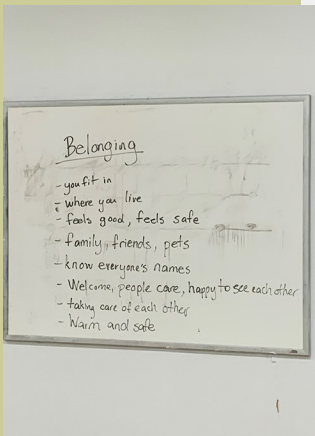 Belonging
- you fit in
- where you live
- feels good, feels safe
- family, friends, pets
- know everyone's names
- Welcome, people care, happy to see each other
- taking care of each other
- Warm and safe